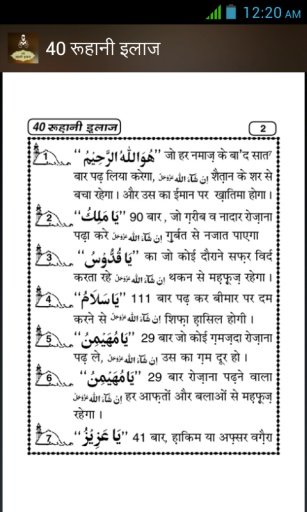 12:20 AM
40 रूहानी इलाज
40 रूहानी इलाज
2
1 “هُوَاللّٰهُ الرَّحِيْمُ” जो हर नमाज़ के बा'द सात
बार पढ़ लिया करेगा, اِنْ شَآءَ اللّٰه عَزَّوَجَلَّ शैत़ान के शर से
बचा रहेगा । और उस का ईमान पर ख़ातिमा होगा ।
2 “يَا مَلِكُ” 90 बार, जो ग़रीब व नादार रोज़ाना
पढ़ा करे اِنْ شَآءَ اللّٰه عَزَّوَجَلَّ ग़ुर्बत से नजात पाएगा
3 “يَا قُدُّوْسُ” का जो कोई दौराने सफ़र विर्द
करता रहे اِنْ شَآءَ اللّٰه عَزَّوَجَلَّ थकन से महफ़ूज़ रहेगा ।
4 “يَا سَلَامُ” 111 बार पढ़ कर बीमार पर दम
करने से اِنْ شَآءَ اللّٰه عَزَّوَجَلَّ शिफ़ा हासिल होगी ।
5 “يَا مُهَيْمِنُ” 29 बार जो कोई ग़मज़दा रोज़ाना
पढ़ ले, اِنْ شَآءَ اللّٰه عَزَّوَجَلَّ उस का ग़म दूर हो ।
6 “يَا مُهَيْمِنُ” 29 बार रोज़ाना पढ़ने वाला
اِنْ شَآءَ اللّٰه عَزَّوَجَلَّ हर आफ़तों और बलाओं से महफ़ूज़
रहेगा ।
7 “يَا عَزِيْزُ” 41 बार, हाकिम या अफ़्सर वग़ैरा